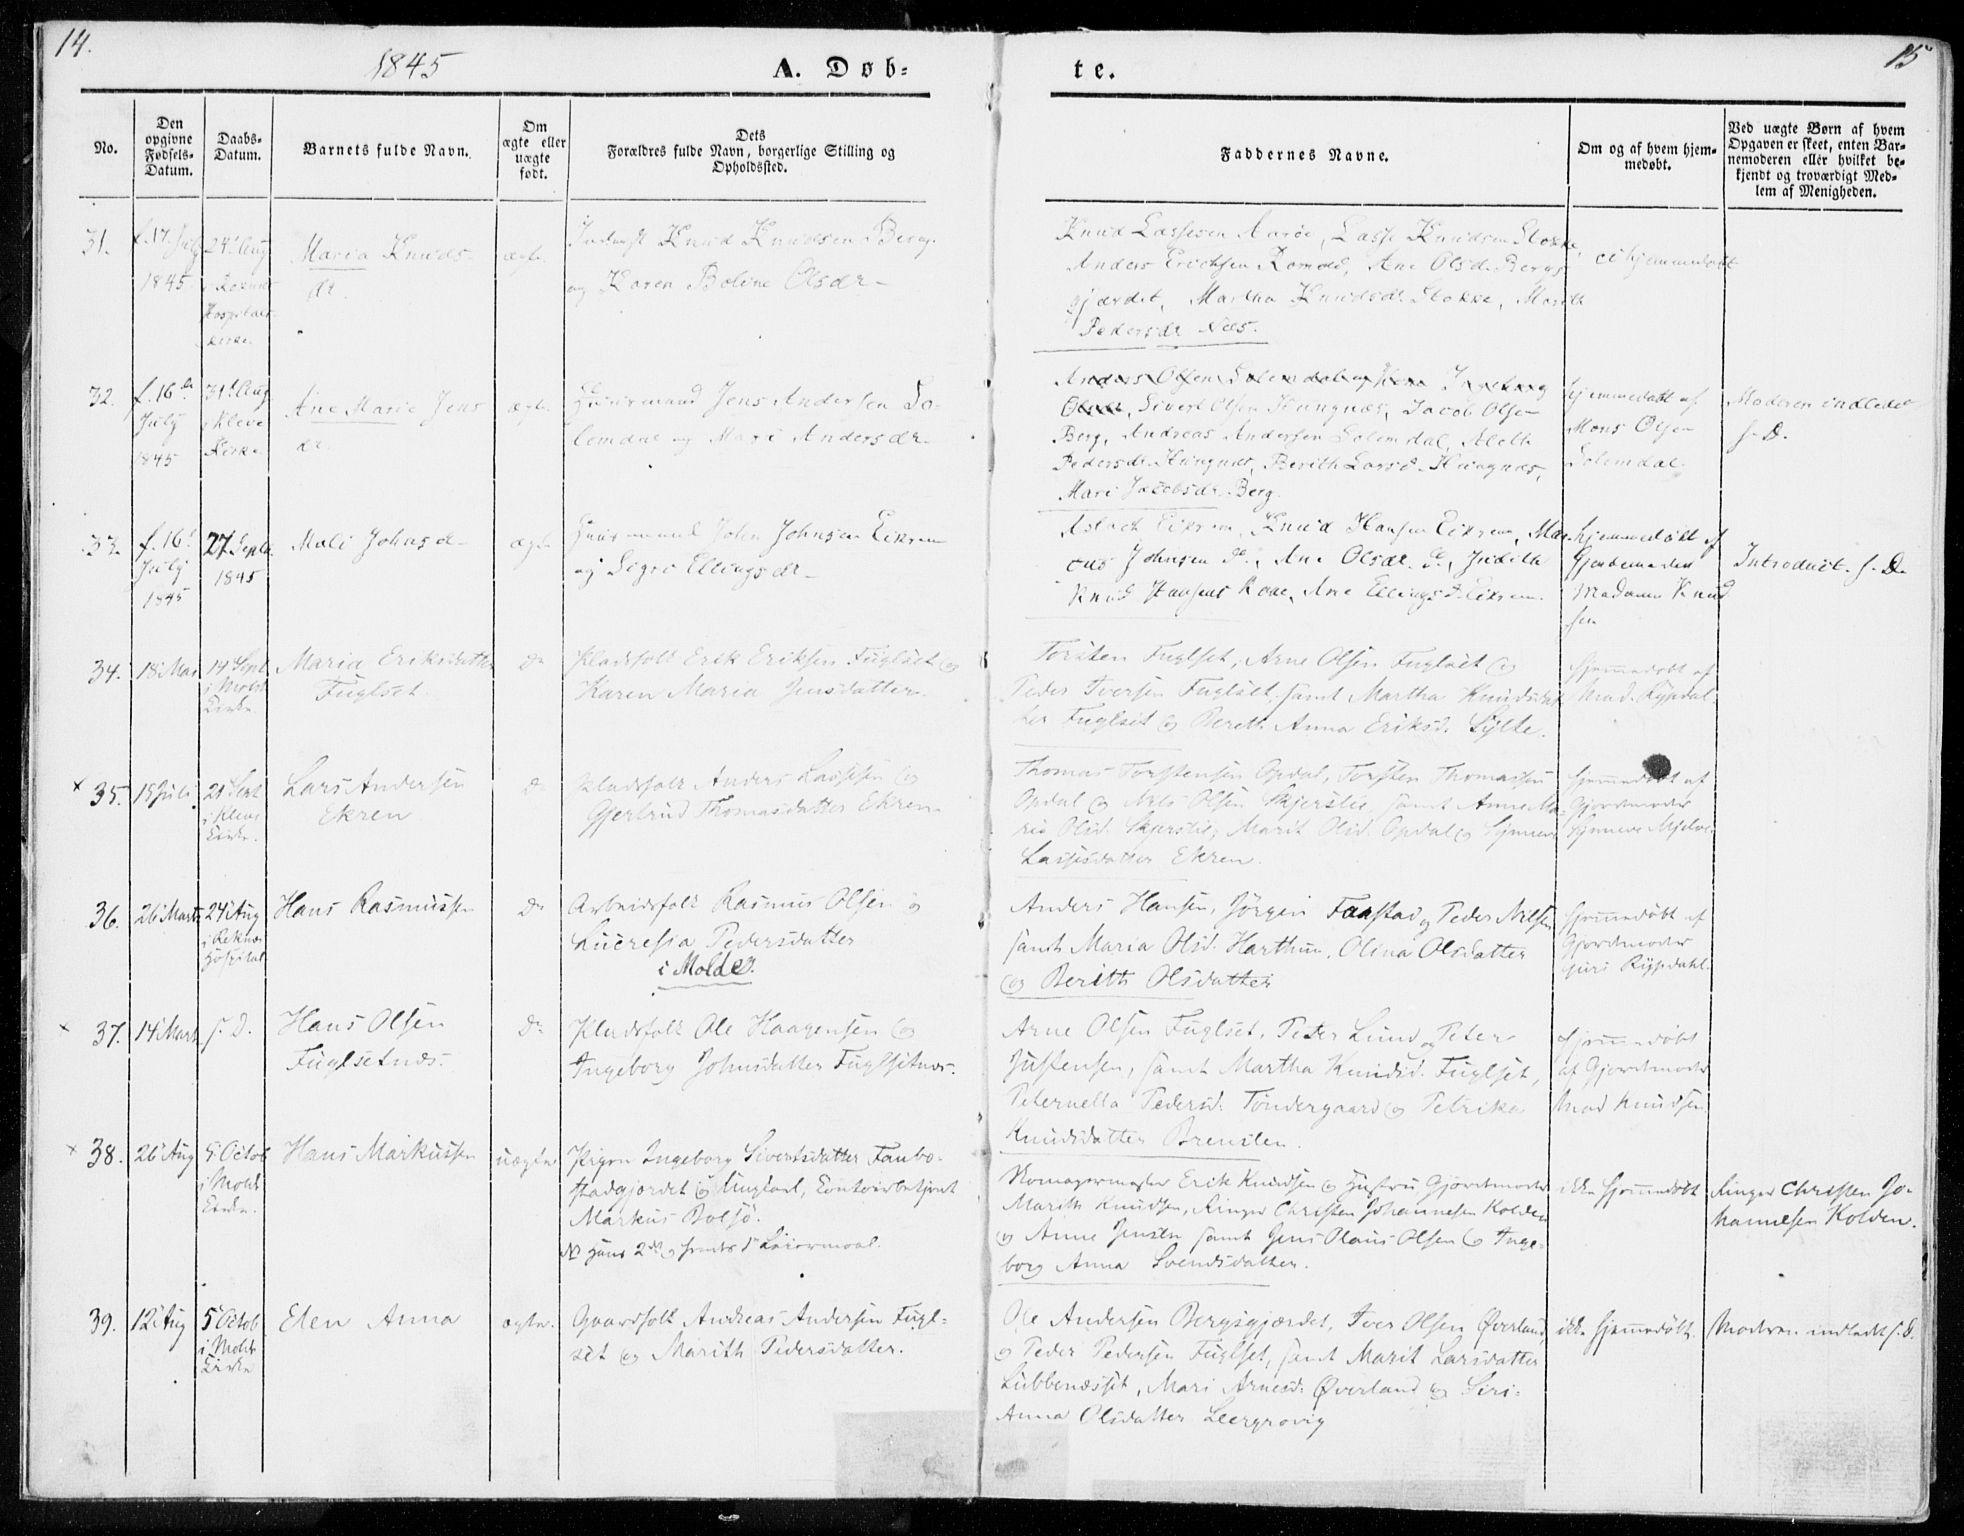 14.
15
1845
A. Døb-
te.
No.
Den
opgivne
Fødsels-
Datum.
Daabs-
Datum.
Barnets fulde Navn.
Om
ægte eller
uægte
født.
Dets
Forældres fulde Navn, borgerlige Stilling og
Opholdssted.
Faddernes Navne.
Om og af hvem hjem-
medøbt.
Ved uægte Børn af hvem
Opgaven er skeet, enten Bar-
nemoderen eller hvilket be-
kjendt og troværdigt Med-
lem af Menigheden.
31.
f. 17. July
1845
24. Aug
Hospitals
Kirke
Maria Knuds-
dr.
ægte
Knud Knudsen Berg
og Karen Boline Olsdr
Knud Lassesen Aarøe, Lasse Knudsen Stokke,
Anders Erichsen Romdal, Ane Olsd. Bergs-
gjærdet, Martha Knudsdr Stokke, Marit
Pedersdr Næs.
ei hjemmedøbt
32.
f. 16de
July
1845
31. Aug
i Kleve
Kirke
Ane Marie Jens
dr.
ægte
Huusmand Jens Andersen So-
lemdal og Mari Andersdr
Anders Olsen Solemdal og Kone Ingeborg
Olsdr, Sivert Olsen Hungnæs, Jacob Olsen
Berg, Andreas Andersen Solemdal,
Pedersdr Hungnes, Berith Larsd. Hungnæs,
Mari Jacobsdr Berg.
hjemmedøbt af
Mons Olsen
Solemdal
Moderen indledet
s. D.
33.
f. 16.
July
1845
27 Septb
1845
Mali Johnsd
ægte
Huusmand John Johnsen Eikrem
og Sigri Ellingsdr
Aslach Eikrem, Knud Hansen Eikrem, Mar-
cus Johnsen d., Ane Olsdr. d., Judith
Knud Hansens Kone, Ane Ellingsd. Eikrem.
hjemmedøbt af
Gjordemoder
Madame Knud
sen
Introduct. s. D.
34.
18 Mai
14 Sept
i Molde
Kirke.
Maria Eriksdatter
Fuglset.
do
Pladsfolk Erik Eriksen Fuglset og
Karen Maria Jensdatter.
Torsten Fuglset, Arne Olsen Fuglset og
Peder Iversen Fuglset, samt Martha Knudsdat-
ter Fuglset og Berett Anna Eriksd. Sylte.
hjemmedøbt af
Mad. Rypdal
× 35.
15 Juli
21 Sept
i Kleve
Kirke.
Lars Andersen
Ekren
do
Pladsfolk Anders Lassesen og
Gjertrud Thomasdatter Ekren.
Thomas Torstensen Opdal, Torsten Thomassen
Opdal og Nils Olsen Skjerslie, samt Anne Ma-
ria Olsd. Skjerslie, Marit Olsd. Opdal og Synneve
Lassesdatter Ekren.
hjemmedøbt af
Gjordemoder
Synneve Mjelve
36.
26 Marts
24 Aug
i Reknæs
Hospital
Hans Rasmussen
do
Arbeidsfolk Rasmus Olsen og
Lucresia Pedersdatter
i Molde.
Anders Hansen, Jørgen Faastad og Peder Nilsen
samt Maria Olsd. Harthun, Olina Olsdatter
og Berith Olsdatter
hjemmedøbt af
Gjordemoder
Guri Rypdahl.
× 37.
14 Marts
s. D.
Hans Olsen
Fuglsetnæs.
do
Pladsfolk Ole Haagensen og
Ingeborg Johnsdatter Fuglsetnæs.
Arne Olsen Fuglset, Peder Lund og Peter
Justensen, samt Martha Knudsd. Fuglset,
Peternella Pedersd. Tøndergaard og Petrika
Knudsdatter Brensten.
hjemmedøbt
af Gjordemoder
Mad Knudsen
× 38.
26 Aug
5 Octob
i Molde
Kirke.
Hans Markussen
uægte
Pigen Ingeborg Sivertsdatter Fanbo-
stadgjerdet og Ungkarl, Contoirbetjent
Markus Bolsø.
Erik Knudsen og Hustru Gjordemoder
Marith Knudsen, Ringer Christen Johannesen Kolden
og Anne Jensen samt Jens Olaus Olsen og Inge-
borg Anna Svendsdatter.
ikke hjemmedøbt
Ringer Christen Jo-
hannesen Kolden.
39.
12 Aug
5 Octob
i Molde
Kirke
Elen Anna
ægte.
Gaardfolk Andreas Andersen Fugl-
set og Marith Pedersdatter.
Ole Andersen Bergsgjærdet, Iver Olsen Øverland,
og Peder Pedersen Fuglset, samt Marit Larsdatter
Lubbenæsset, Mari Arnesd. Øverland og Siri-
Anna Olsdatter Leergrovig
ikke hjemmedøbt.
Moderen indledt s. D.